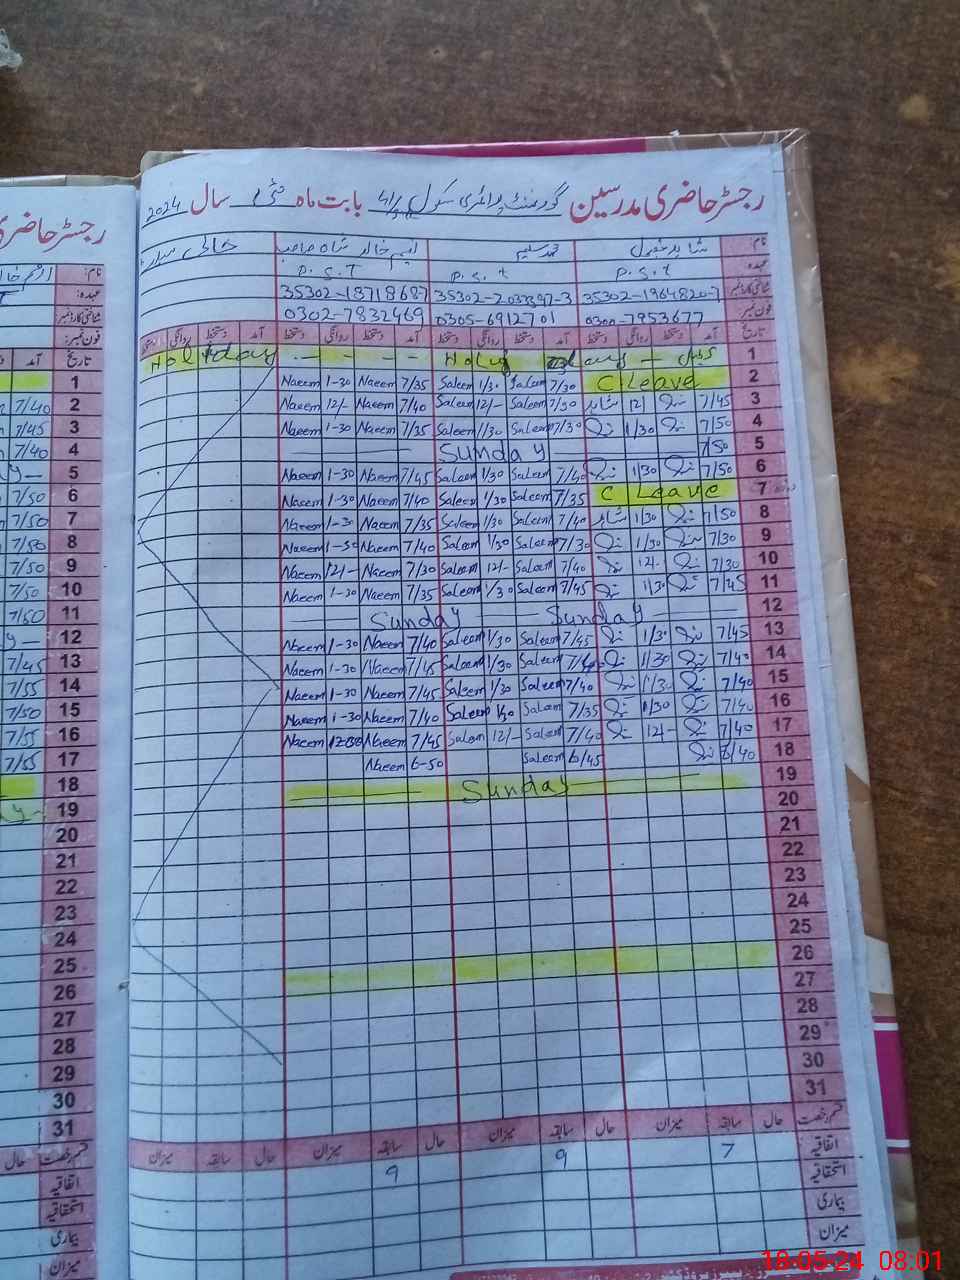 رجسٹر حاضری مدرسین گورنمنٹ پرائمری سکول بابت ماہ مئی سال 2024
نام: شاہد مقبول محمد سلیم ایم خالد شاہ صاحب خالی
عہدہ P.S.T P.S.t P.S.T
شناختی کارڈ نمبر 35302-1964820-7 35302-2037397-3 35302-18718687
فون نمبر 0300-7953677 0305-6912701 0302-7832469
تاریخ آمد دستخط روانگی دستخط آمد دستخط روانگی دستخط آمد دستخط روانگی دستخط آمد دستخط روانگی
Holidays - - - - Holiy days - 1
Naeem 1-30 Naeem 7/35 Saleem 1/30 Saleem 7/30 C Leave 2
Naeem 12/- Naeem 7/40 Saleem 12/- Saleem 7/30 شاہد 12/ 7/45 3
Naeem 1-30 Naeem 7/35 Saleem 1/30 Saleem 7/30 1/30 7/50 4
Sunday 7/50 5
Naeem 1-30 Naeem 7/45 Saleem 1/30 Saleem 7/40 1/30 7/50 6
Naeem 1-30 Naeem 7/40 Saleem 1/30 Saleem 7/35 C Leave 7
Naeem 1-30 Naeem 7/35 Saleem 1/30 Saleem 7/40 شاہد 1/30 7/50 8
Naeem 1-30 Naeem 7/40 Saleem 1/30 Saleem 7/30 1/30 7/30 9
Naeem 12/- Naeem 7/30 Saleem 12/- Saleem 7/40 12/- 7/30 10
Naeem 1-30 Naeem 7/35 Saleem 1/30 Saleem 7/45 1/30 7/45 11
Sunday Sunday 12
Naeem 1-30 Naeem 7/40 Saleem 1/30 Saleem 7/45 1/30 7/45 13
Naeem 1-30 Naeem 7/45 Saleem 1/30 Saleem 1/30 7/40 14
Naeem 1-30 Naeem 7/45 Saleem 1/30 Saleem 7/40 1/30 7/40 15
Naeem 1-30 Naeem 7/40 Saleem 1/30 Saleem 7/35 1/30 7/40 16
Naeem 12-30 Naeem 7/45 Saleem 12/- Saleem 7/40 12/- 7/40 17
Naeem 6-50 Saleem 6/45 6/40 18
Sunday 19
20
21
22
23
24
25
26
27
28
29
30
31
قسم رخصت حال سابقہ میزان حال سابقہ میزان حال سابقہ میزان حال سابقہ میزان
اتفاقیہ 7 9 9
استحقاقیہ
بیماری
میزان
رجسٹر حاضری
نام:
عہدہ:
شناختی کارڈ نمبر
فون نمبر:
تاریخ آمد
1
7/40 2
7/45 3
7/40 4
5
7/50 6
7/50 7
7/50 8
7/50 9
7/50 10
7/50 11
12
7/45 13
7/55 14
7/50 15
7/55 16
7/55 17
18
19
20
21
22
23
24
25
26
27
28
29
30
31
قسم رخصت حال
اتفاقیہ
استحقاقیہ
بیماری
میزان
18-05-24 08:01